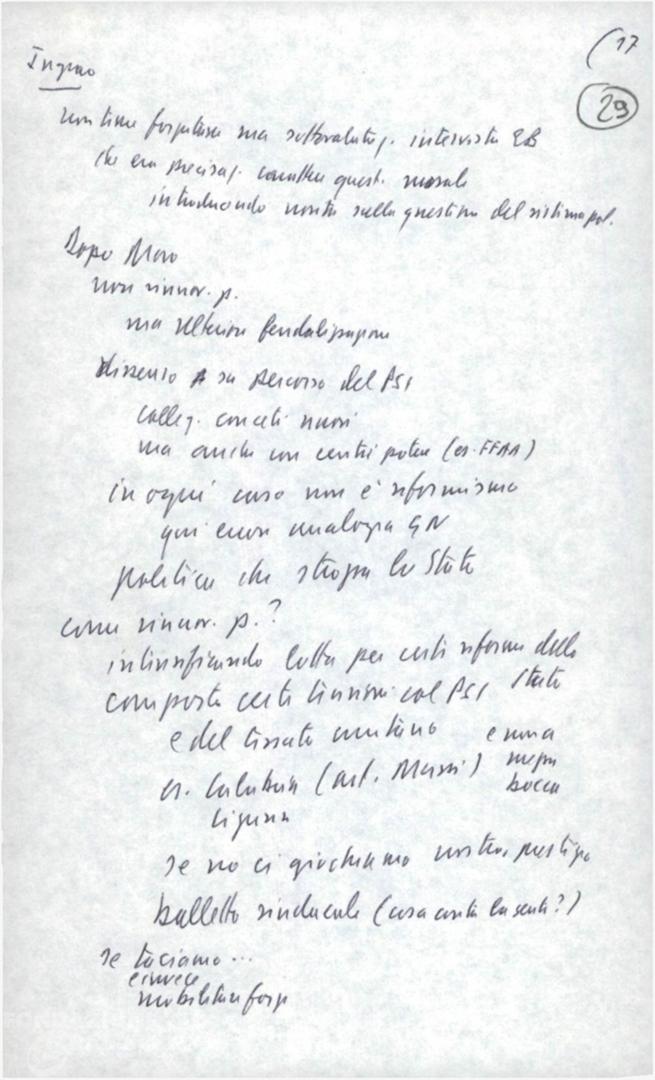 (17
29
Ingrao
non tener forzature ma sottovalutaz. intervista EB
che era precisaz. carattere quest. morale
introducendo novità sulla questione del sistema pol.
Dopo Moro
non rinnov. p.
ma ulteriore feudalizzazione
dissenso su percorso del PSI
colleg. con ceti nuovi
ma anche con centri potere (es. FFAA)
in ogni caso non è riformismo
qui errore analogia GN
politica che stroppa lo Stato
come rinnov. p.?
intensificando lotta per certe riforme dello Stato
comporta certe tensioni col PSI
e del tessuto unitario e non a mezza bocca
es. Calabria (art. Mussi)
Liguria
se no ci giochiamo nostro prestigio
balletto sindacale (cosa conta la gente?)
se tacciamo...
e invece
mobilitare forze